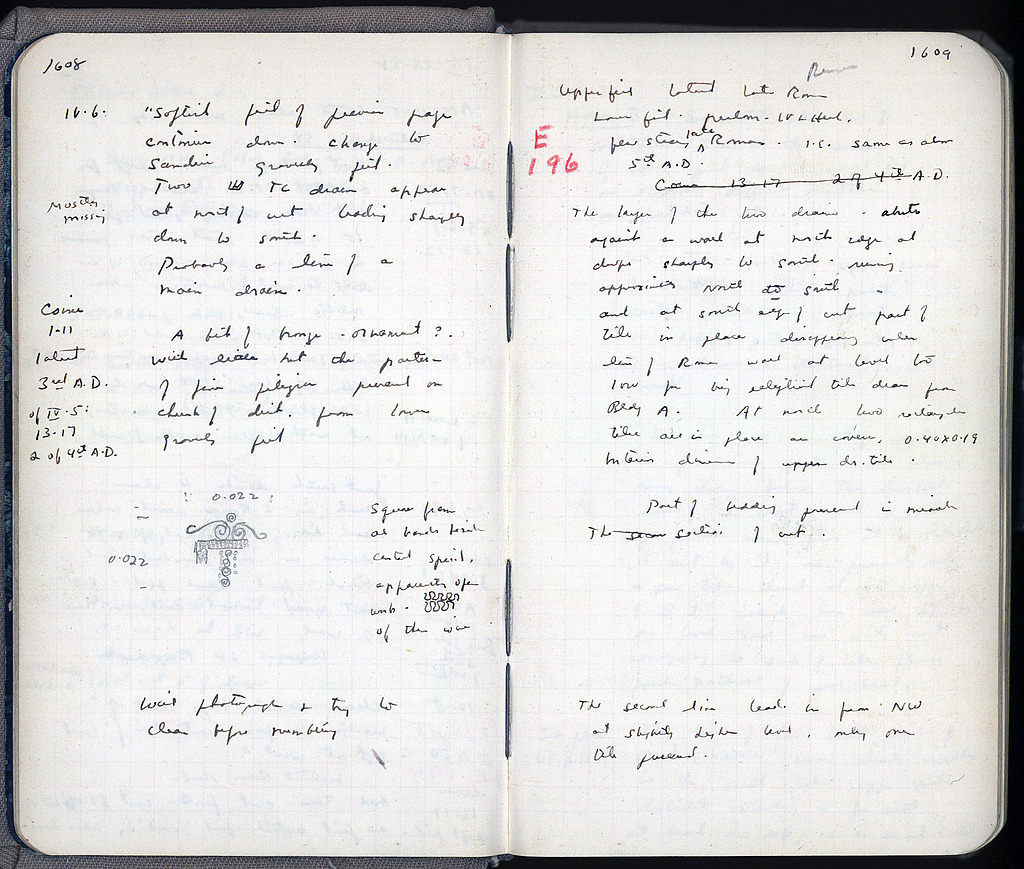 1608
IV.6: "Softish fill of previous page
continues down. change to
sandier gravelly fill.
Two TC drains appear
Mostly missing
at north of cut leading sharply
down to south.
Probably a line of a
main drain.
Coins
1-11
1 latest
3rd A.D.
of IV.5:
13-17
2 of 4th A.D.
A bit of bronze - ornament ?.
with little but the pattern
of fine filigree present on
chunk of dirt. from lower
gravelly fill
0.022
0.022
Square frame
central spiral.
apparently open
work.
of thin wire
Will photograph & try to
clean before numbering
1609
Roman
E
196
Upper fill latest late Roman
Lower fill. prelim. IV L Hell.
few stray late Roman. i.e. same as above
5th A.D.
Coins 13-17 2 of 4th A.D.
The layer of the two drains - abuts
against a wall at north edge at
drops sharply to south. running
approximately north to south -
and at south edge of cut part of
tile in place disappearing under
line of Roman wall at level to
low for big elliptical tile drain from
Bldg A. At north two rectangular
tiles are in place as covers, 0.40x0.19
Interior dimension of upper dr. tile.
Part of bedding present in middle
The section of cut.
The second line leads in from NW
at slightly higher level, only one
tile preserved.